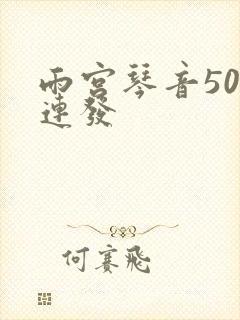 雨宮琴音50
連發
何賽飛